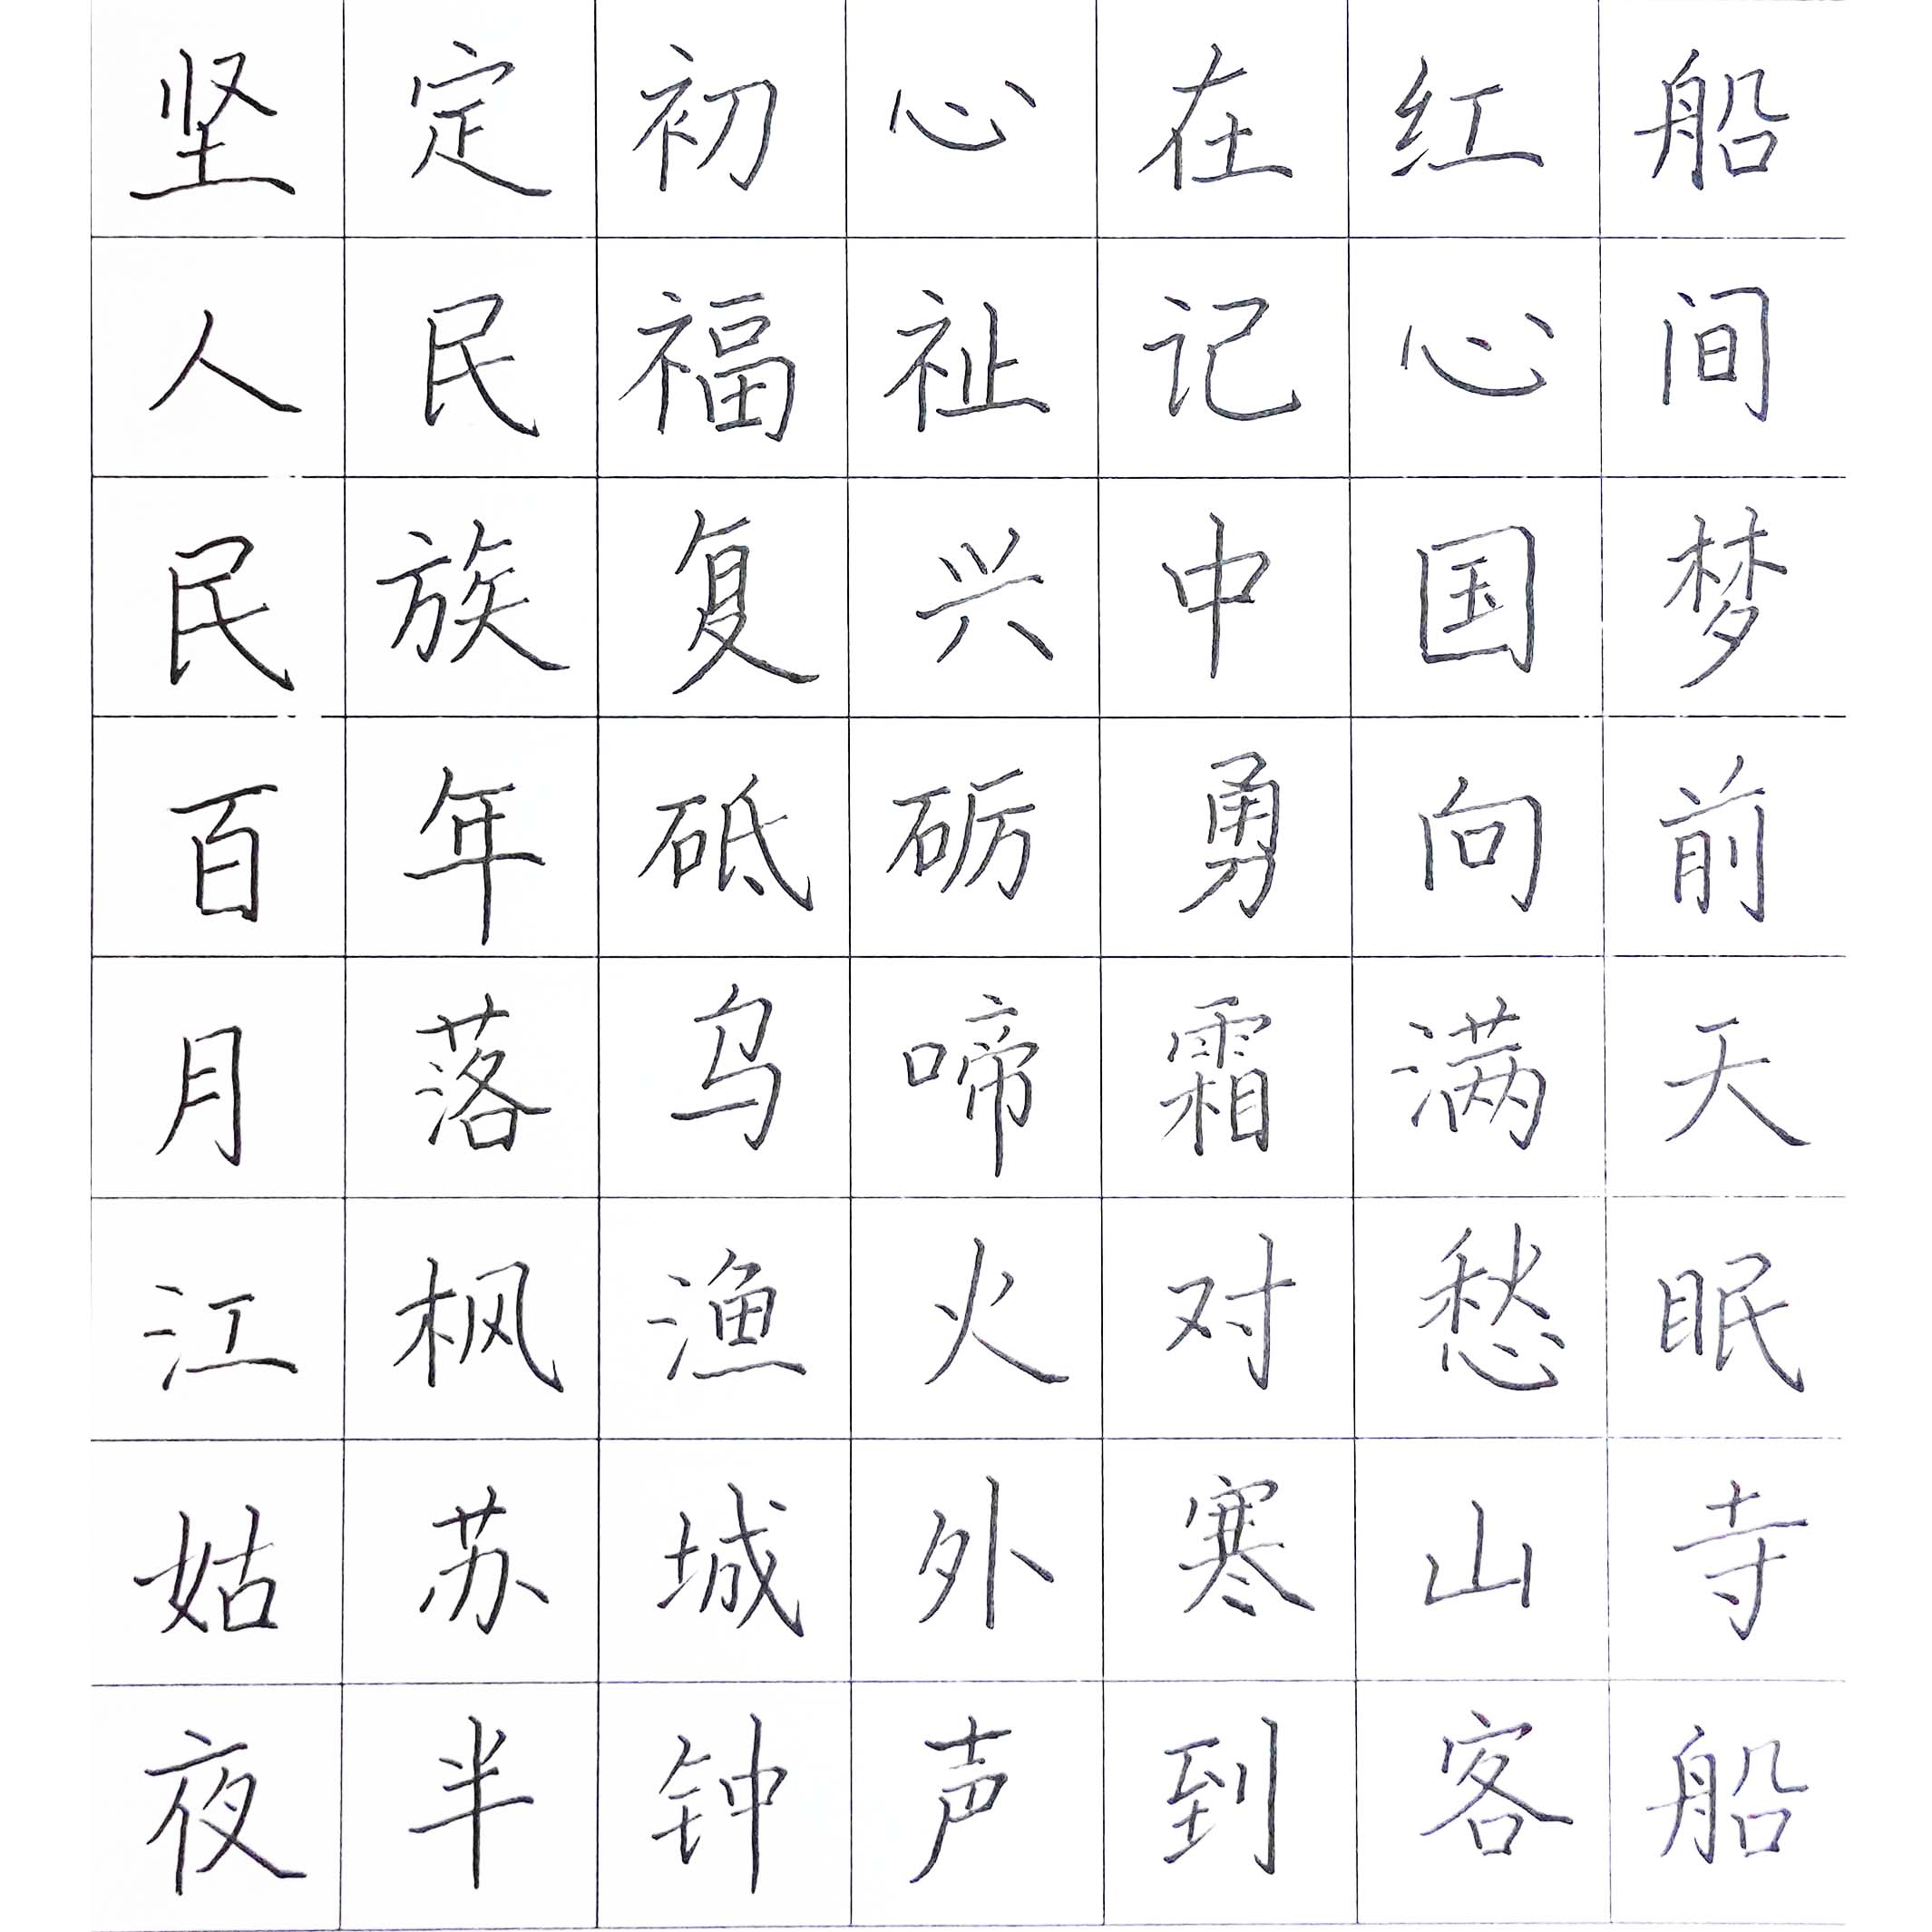 坚定初心在红船
人民福祉记心间
民族复兴中国梦
百年砥砺勇向前
月落乌啼霜满天
江枫渔火对愁眠
姑苏城外寒山寺
夜半钟声到客船